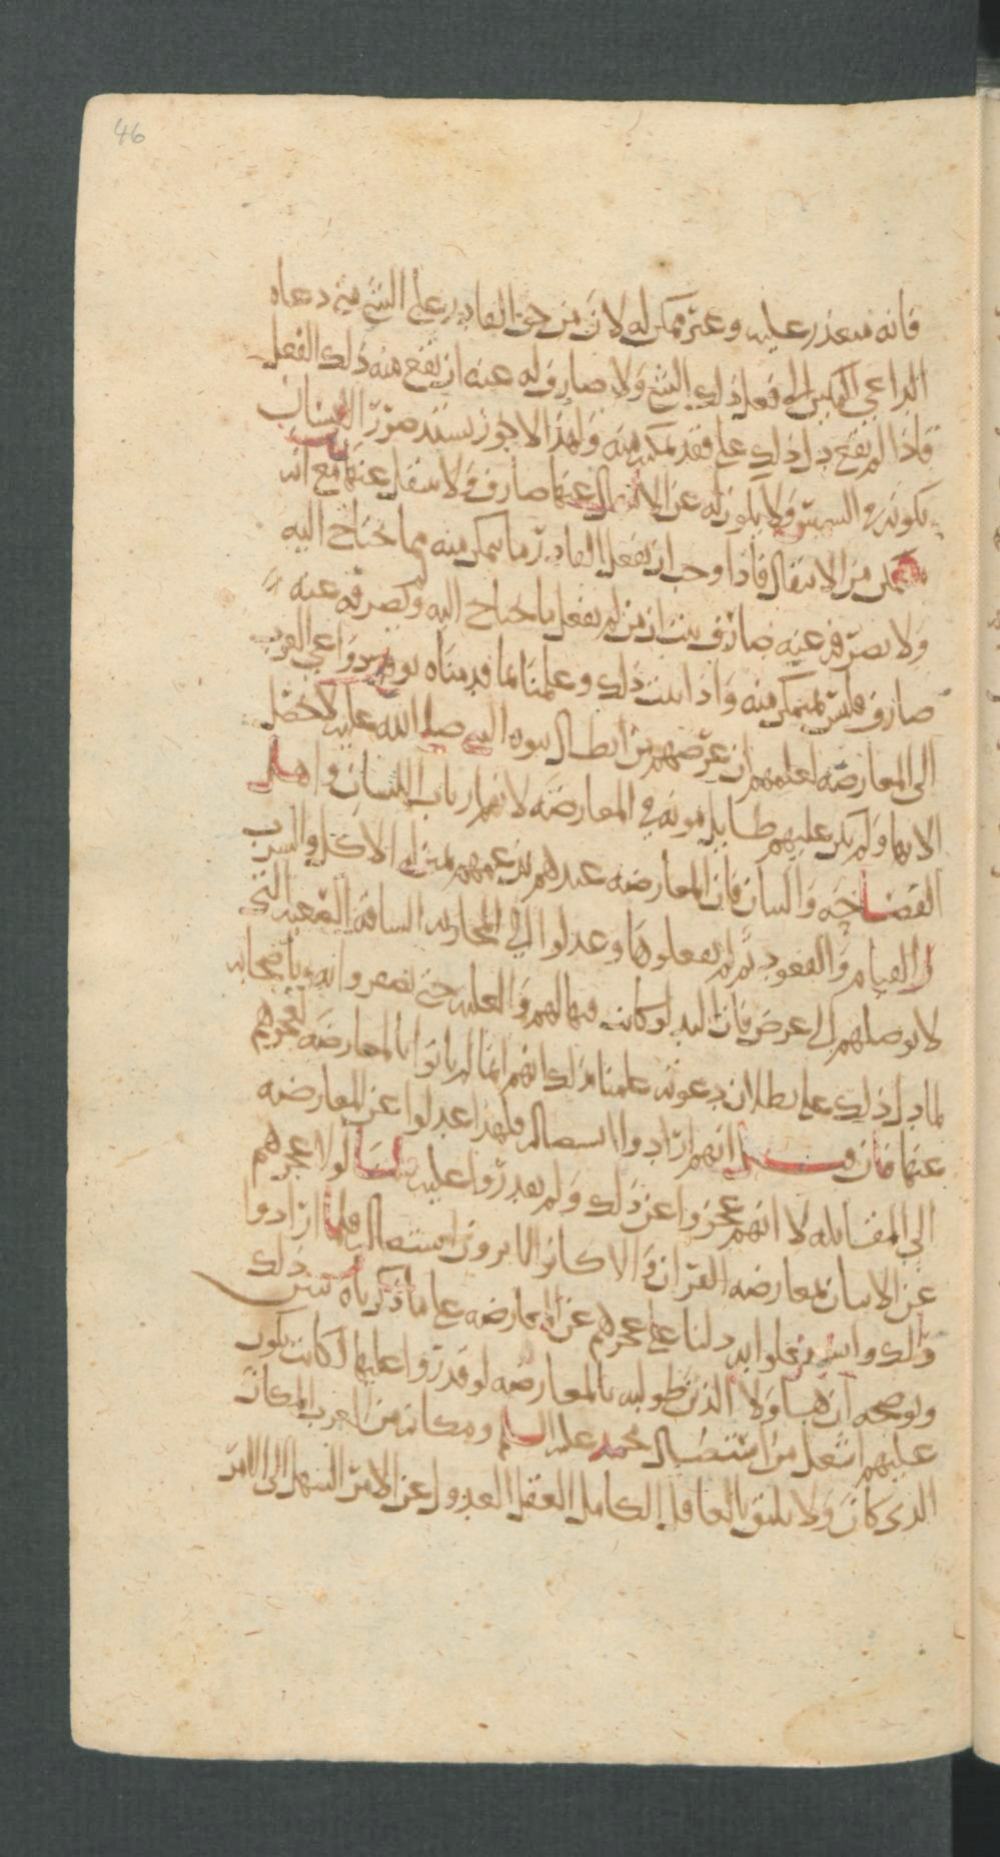 46
فانه متعذر عليه وغير ممكن له لان من حق القادر على الشي متى دعاه
الداعي المكين الى فعل ذلك الشي ولا صارف له عنه ان يقع منه ذلك الفعل
فاذا لم يقع دل ذلك على فقد تمكنه منه ولهذا لا يجوز
بكونه في الشمس ولا يكون له عن الانتقال عنها صارف ولا ينتقل عنها مع انه
متمكن من الانتقال فاذا وجب ان يفعل القادر ما يتمكن منه مما يحتاج اليه
ولا يصرفه عنه صارف ثبت ان من لم يفعل ما يحتاج اليه ولم يصرفه عنه
صارف فليس بمتمكن منه واذا ثبت ذلك وعلمنا بما قدمناه توفر دواعي العرب
الى المعارضه لعلمهم ان غرضهم من ابطال نبوه النبي صلى الله عليه لا يحصل
الا بها ولم يكن عليهم طايل مونه في المعارضه لانهم ارباب اللسان واهل
الفصاحه والبيان فان المعارضه عندهم بزعمهم بمنزله الاكل والشرب
والقيام والقعود ثم لم يفعلوها وعدلوا الى المحاربه الشاقه الصعبه التي
لا توصلهم الى غرض فان اليد لو كانت فيها لهم والغلبه حتى يقهروا به وباصحابه
لما دل ذلك على بطلان دعوته علمنا بذلك انهم انما لم ياتوا بالمعارضه لعجزهم
عنها فان قيل انهم ارادوا استيصاله فلهذا عدلوا عن المعارضه
الى المقاتله لا انهم عجزوا عن ذلك ولم يقدروا عليه قلنا لولا عجزهم
عن الاتيان بمعارضه القران والا كانوا لا يرون استيصاله فلما ارادوا
ذلك واشتغلوا به دلنا على عجزهم عن المعارضه على ما ذكرناه يبين ذلك
ويوضحه ان هبا ولا الذين طولبوا بالمعارضه لو قدروا عليها لكانت تكون
عليهم اسهل من استيصال محمد عليه السلم ومكانه من العرب المكان
الذي كان ولا يليق بالعاقل الكامل العقل العدول عن الامر السهل الى الامر